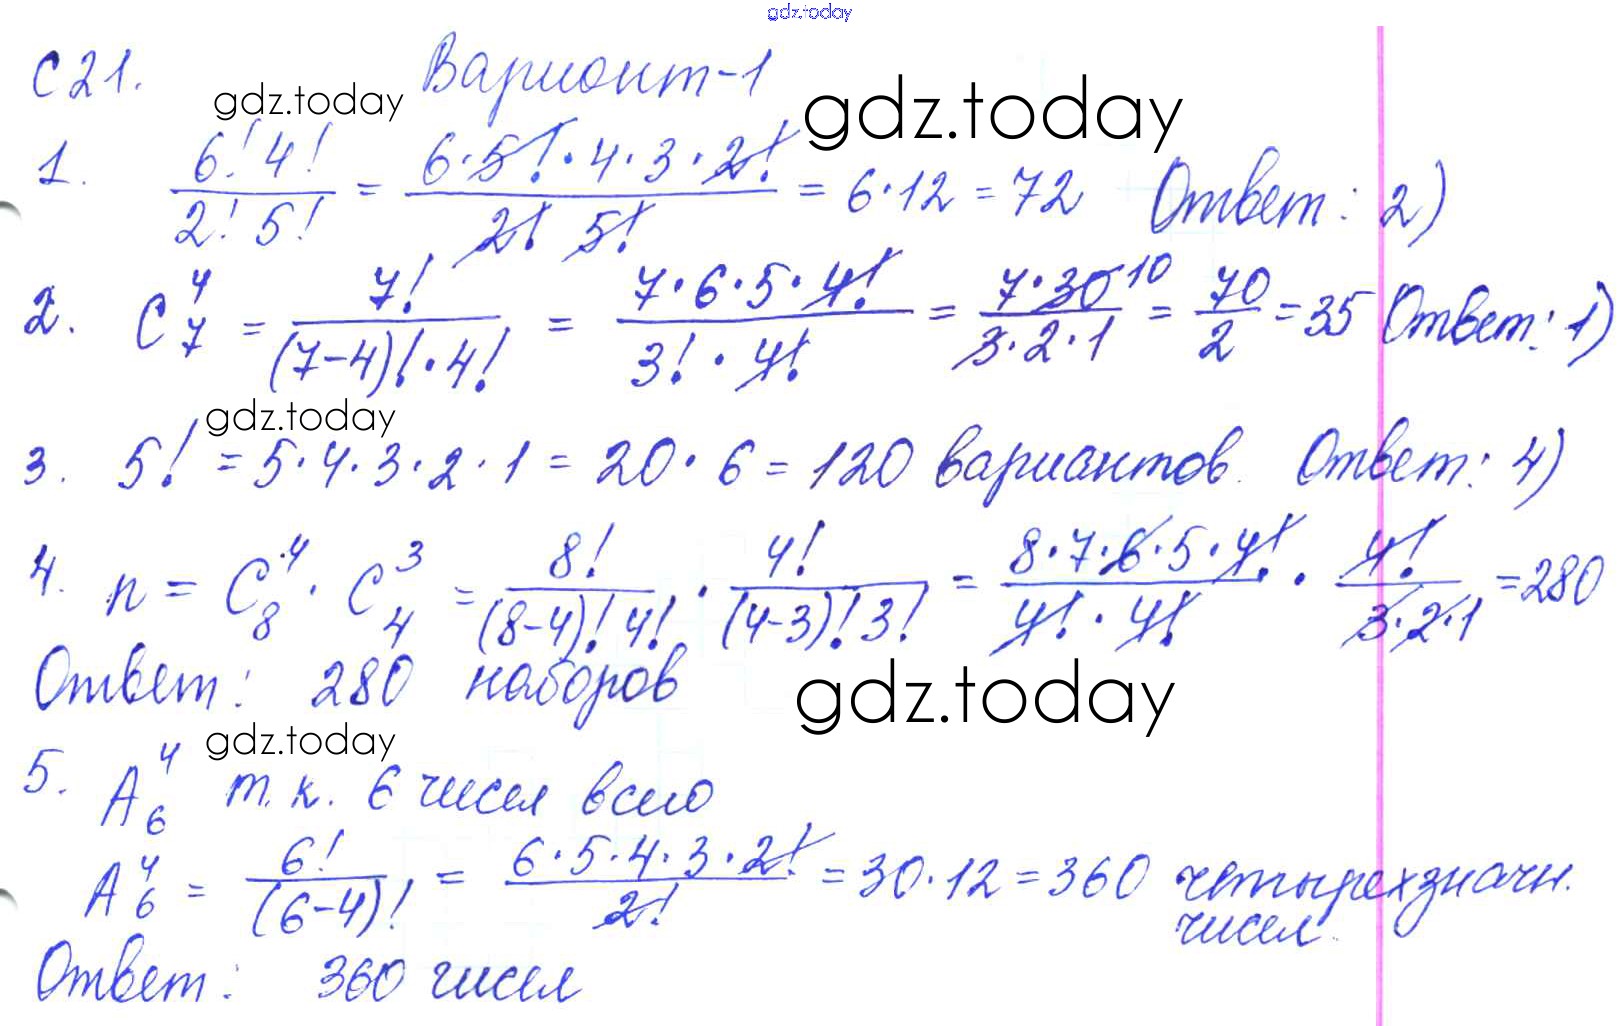 gdz.today
С 21. Вариант-1
gdz.today gdz.today
1. 6! 4! / 2! 5! = 6·5!·4·3·2! / 2! 5! = 6·12 = 72 Ответ: 2)
2. C₇⁴ = 7! / (7-4)!·4! = 7·6·5·4! / 3!·4! = 7·30 10 / 3·2·1 = 70/2 = 35 Ответ: 1)
gdz.today
3. 5! = 5·4·3·2·1 = 20·6 = 120 вариантов. Ответ: 4)
4. n = C₈⁴ · C₄³ = 8! / (8-4)! 4! · 4! / (4-3)! 3! = 8·7·6·5·4! / 4!·4! · 4! / 3·2·1 = 280
Ответ: 280 наборов
gdz.today
gdz.today
5. A₆⁴ т.к. 6 чисел всего
A₆⁴ = 6! / (6-4)! = 6·5·4·3·2! / 2! = 30·12 = 360 четырехзначн.
чисел.
Ответ: 360 чисел